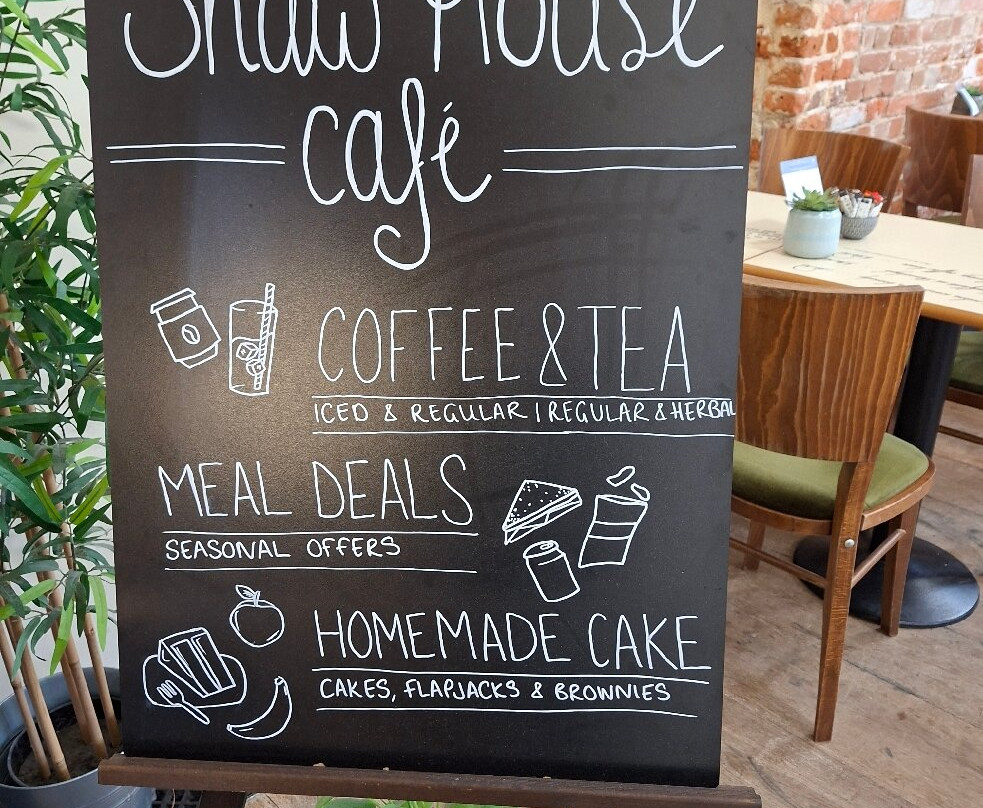 Shaw House
café
COFFEE & TEA
ICED & REGULAR | REGULAR & HERBAL
MEAL DEALS
SEASONAL OFFERS
HOMEMADE CAKE
CAKES, FLAPJACKS & BROWNIES